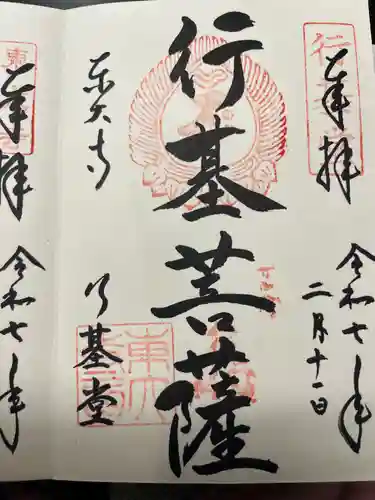 奉拝
令和七年
二月十一日
行基菩薩
東大寺
行基堂
奉拝
令和七年